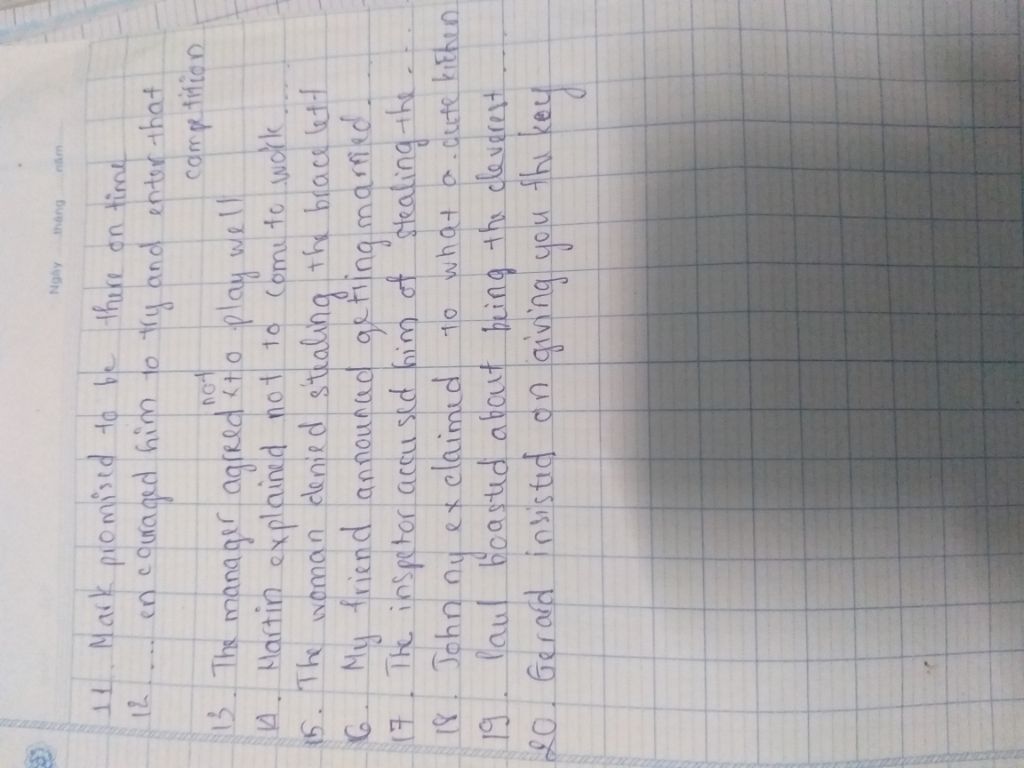 Ngày ........ tháng ........ năm ........
11. Mark promised to be there on time
12. .... encouraged him to try and enter that
competition
not
13. The manager agreed to play well
14. Martin explained not to come to work....
15. The woman denied stealing the bracelett
16. My friend announced getting married.....
17. The inspetor accused him of stealing the....
18. Johnny exclaimed to what a cute kitchen
19. Paul boasted about being the cleverest....
20. Gerard insisted on giving you the key